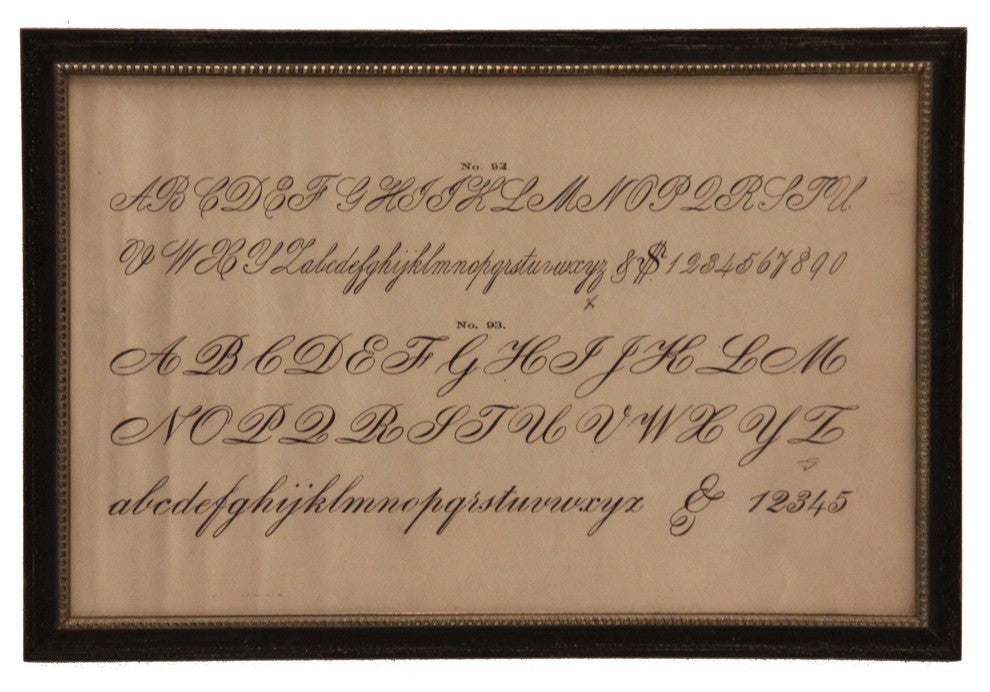 No. 92
A B C D E F G H I J K L M N O P Q R S T U
V W X Y Z a b c d e f g h i j k l m n o p q r s t u v w x y z & $ 1 2 3 4 5 6 7 8 9 0
x
No. 93.
A B C D E F G H I J K L M
N O P Q R S T U V W X Y Z
a b c d e f g h i j k l m n o p q r s t u v w x y z & 1 2 3 4 5